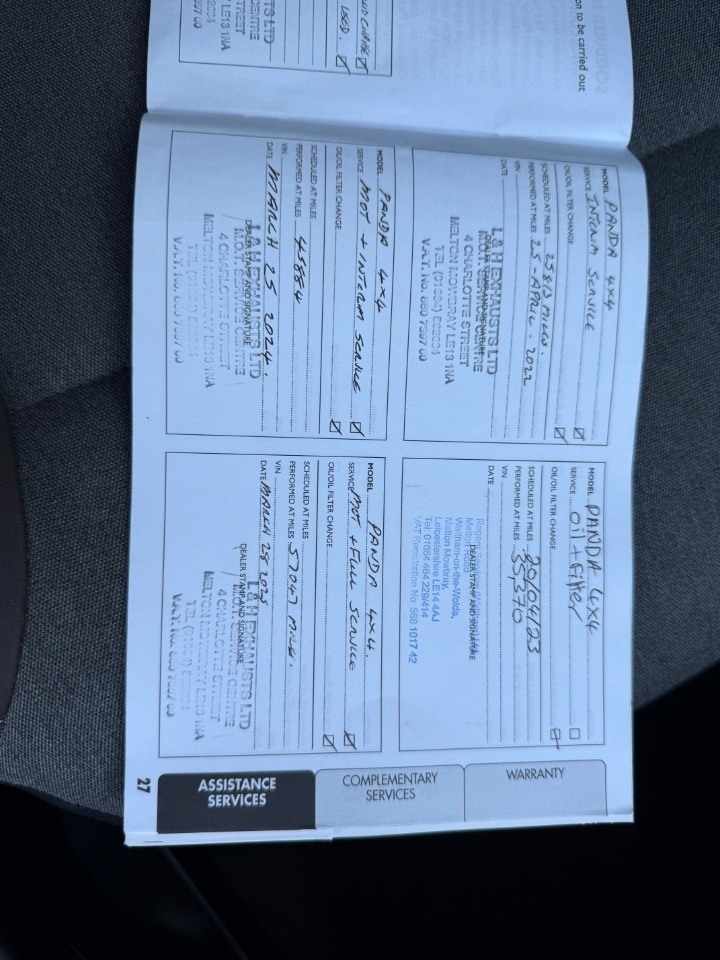 on to be carried out
USED.
MODEL PANDA 4x4
SERVICE INTERIM SERVICE
OIL/OIL FILTER CHANGE
SCHEDULED AT MILES
PERFORMED AT MILES 25-APRIL-2022
VIN
DATE
DEALER STAMP AND SIGNATURE
L & H EXHAUSTS LTD
M.O.T. SERVICE CENTRE
4 CHARLOTTE STREET
MELTON MOWBRAY LE13 1NA
MODEL PANDA 4x4
SERVICE oil + filter
OIL/OIL FILTER CHANGE
SCHEDULED AT MILES 20/04/23
PERFORMED AT MILES 35,370
VIN
DATE
DEALER STAMP AND SIGNATURE
Waltham-on-the-Wolds,
Melton Mowbray,
Leicestershire LE14 4AJ
Tel: 01664 464 229/414
VAT Registration No. 568 1017 42
MODEL PANDA 4x4
SERVICE MOT + INTERIM SERVICE
OIL/OIL FILTER CHANGE
SCHEDULED AT MILES
PERFORMED AT MILES 45884
VIN
DATE MARCH 25 2024.
DEALER STAMP AND SIGNATURE
L & H EXHAUSTS LTD
M.O.T. SERVICE CENTRE
4 CHARLOTTE STREET
MELTON MOWBRAY LE13 1NA
MODEL PANDA 4x4.
SERVICE MOT + FULL SERVICE
OIL/OIL FILTER CHANGE
SCHEDULED AT MILES
PERFORMED AT MILES 57047 MILES.
VIN
DATE MARCH 25 2025
DEALER STAMP AND SIGNATURE
L & H EXHAUSTS LTD
M.O.T. SERVICE CENTRE
4 CHARLOTTE STREET
MELTON MOWBRAY LE13 1NA
WARRANTY
COMPLEMENTARY
SERVICES
ASSISTANCE
SERVICES
27